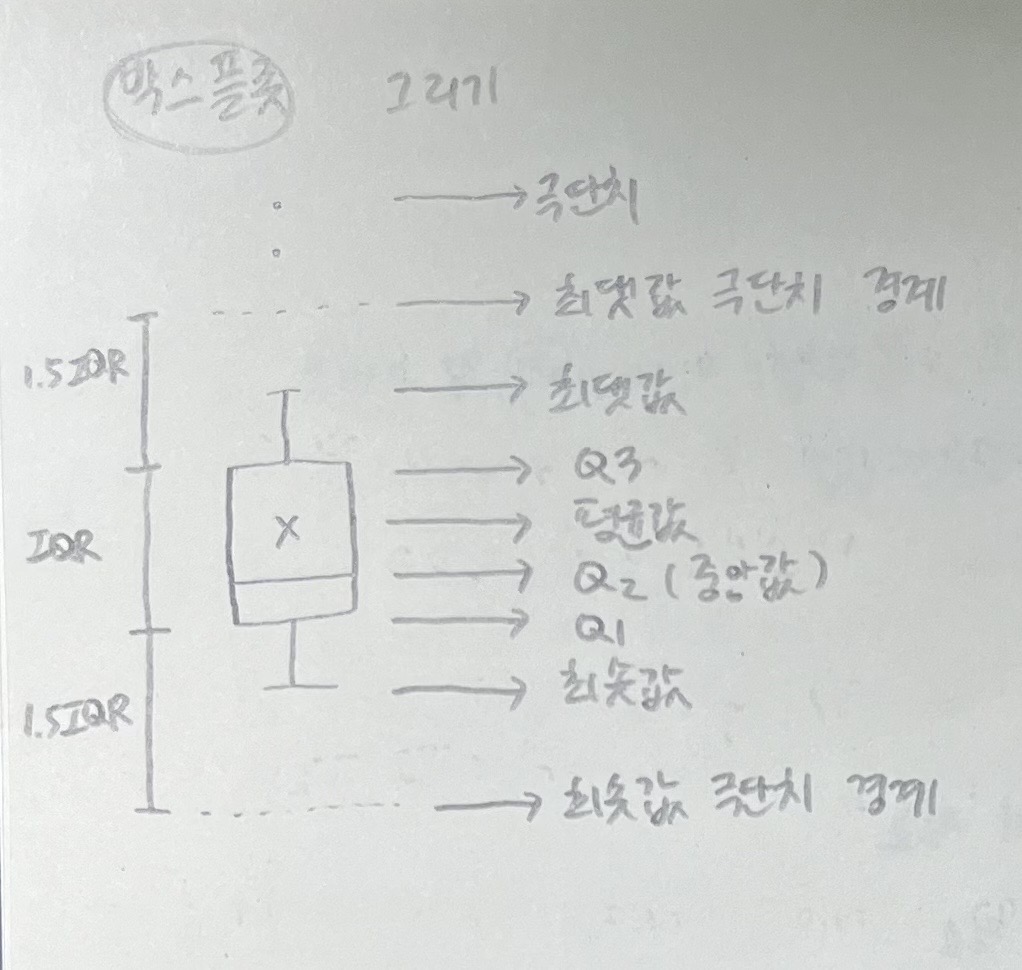 박스플롯 그리기
극단치
최댓값 극단치 경계
1.5IQR
최댓값
Q3
평균값
IQR
Q2 (중앙값)
Q1
최솟값
1.5IQR
최솟값 극단치 경계